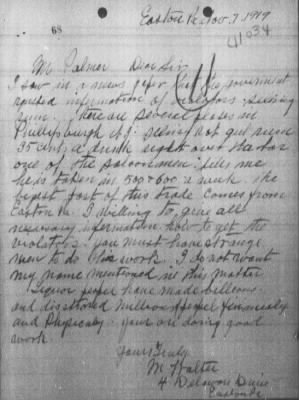 Easton Pa Nov. 7, 1919
68
41034
Mr Palmer Dear Sir
I saw in a news paper that the government
wanted information of violators selling
rum. There are several places in
Phillipsburg N.J. selling hot gut rum
35 cents a drink right over the bar
one of the saloonmen tells me
he is taken in 500 & 600 a week. the
bigest part of this trade comes from
Easton Pa. I willing to give all
necessary information how to get the
violators. you must have strange
men to do this work. I do not want
my name mentioned in this matter
Liquor people have made billions
and disstroied millions of people financialy
and Physicaly. your are doing good
work.
Yours Truly
M Walter
4 Delawar Drive
Easton Pa